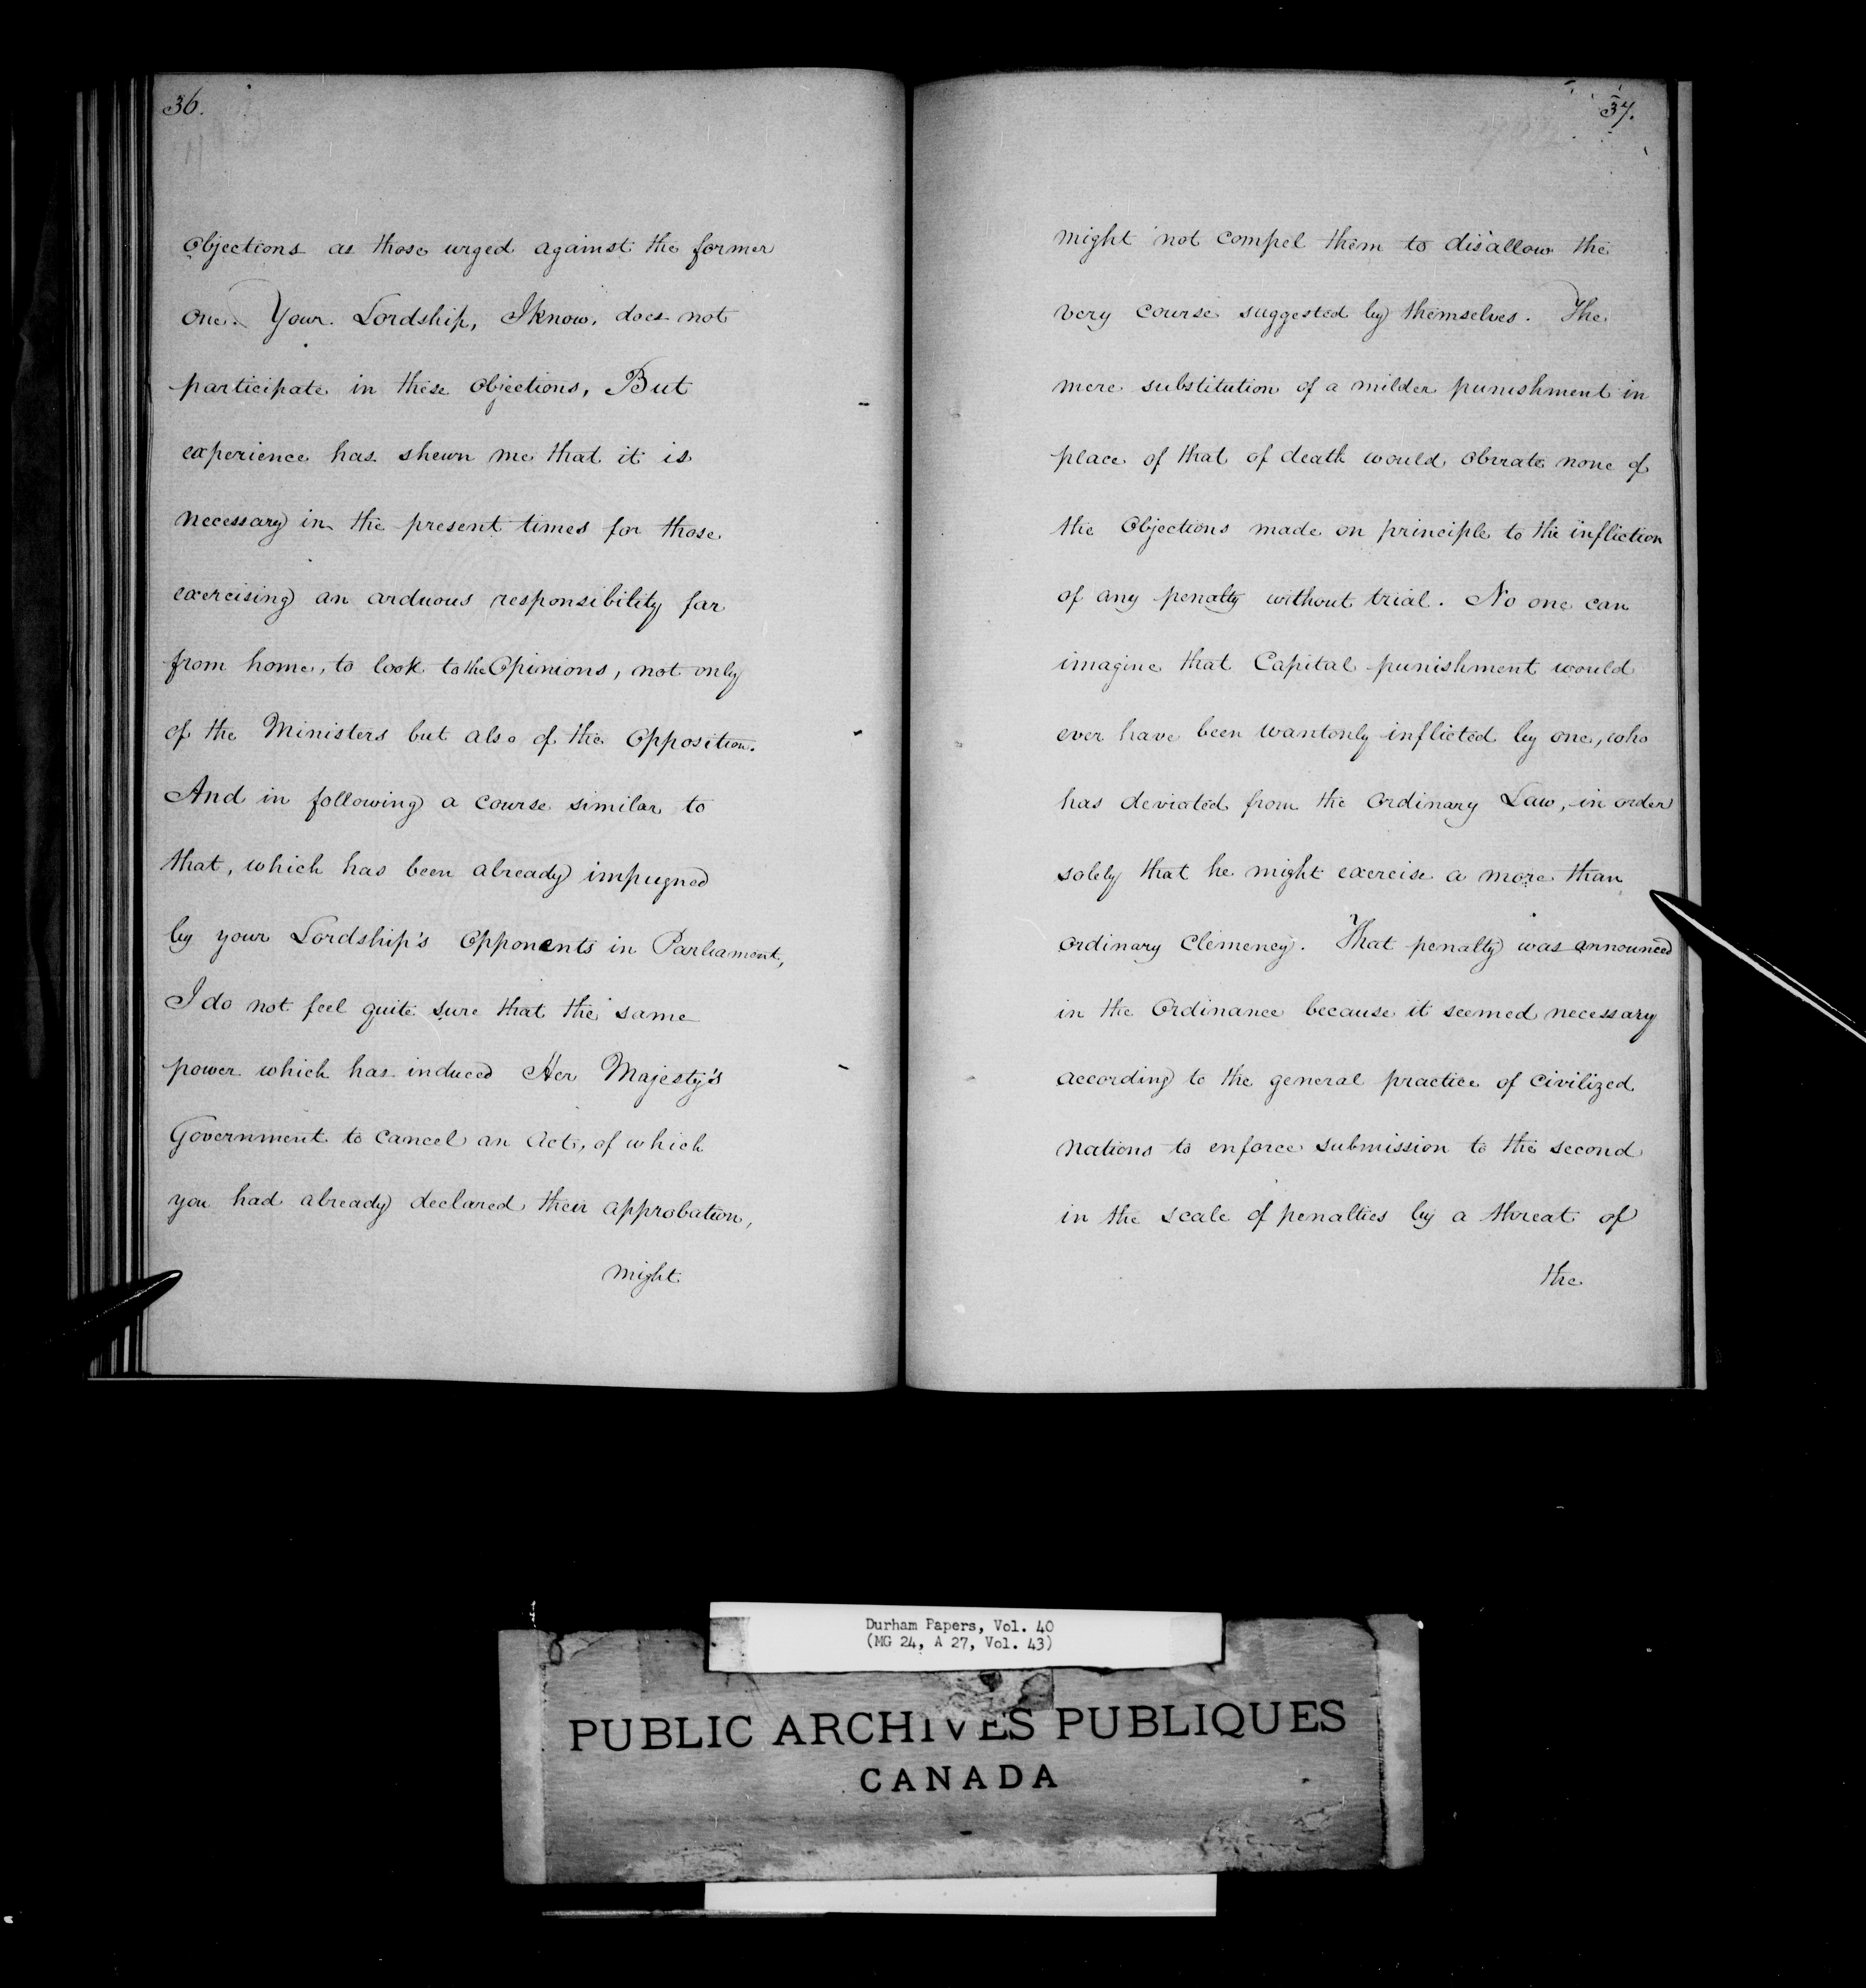 36.
Objections as those urged against the former
one. Your Lordship, I know, does not
participate in these Objections, But
experience has shewn me that it is
necessary in the present times for those
exercising an arduous responsibility far
from home, to look to the Opinions, not only
of the Ministers but also of the Opposition.
And in following a course similar to
that, which has been already impugned
by your Lordship's Opponents in Parliament,
I do not feel quite sure that the same
power which has induced Her Majesty's
Government to cancel an Act, of which
you had already declared their approbation,
might
37.
might not compel them to disallow the
very course suggested by themselves. The
mere substitution of a milder punishment in
place of that of death would obviate none of
the Objections made on principle to the infliction
of any penalty without trial. No one can
imagine that Capital punishment would
ever have been wantonly inflicted by one, who
has deviated from the ordinary Law, in order
solely that he might exercise a more than
ordinary Clemency. That penalty was announced
in the Ordinance because it seemed necessary
according to the general practice of civilized
Nations to enforce submission to the second
in the scale of penalties by a threat of
the
Durham Papers, Vol. 40
(MG 24, A 27, Vol. 43)
PUBLIC ARCHIVES PUBLIQUES
CANADA